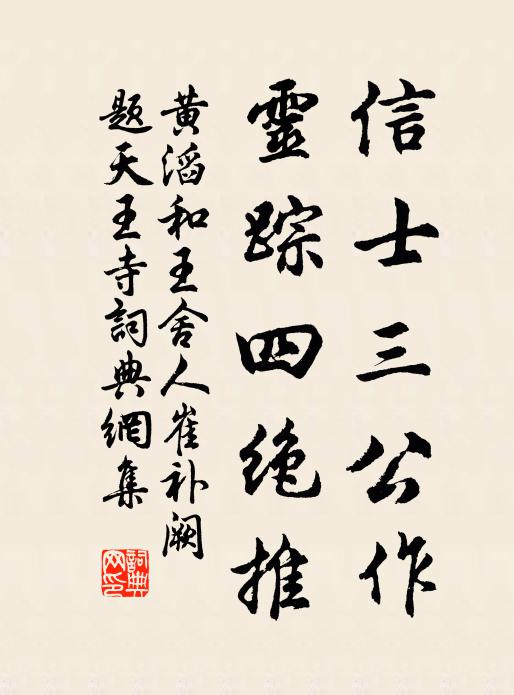 信士三公作
靈踪四絶推
黄滔和王舍人崔补阙
题天王寺詞典網集
詞典
网印